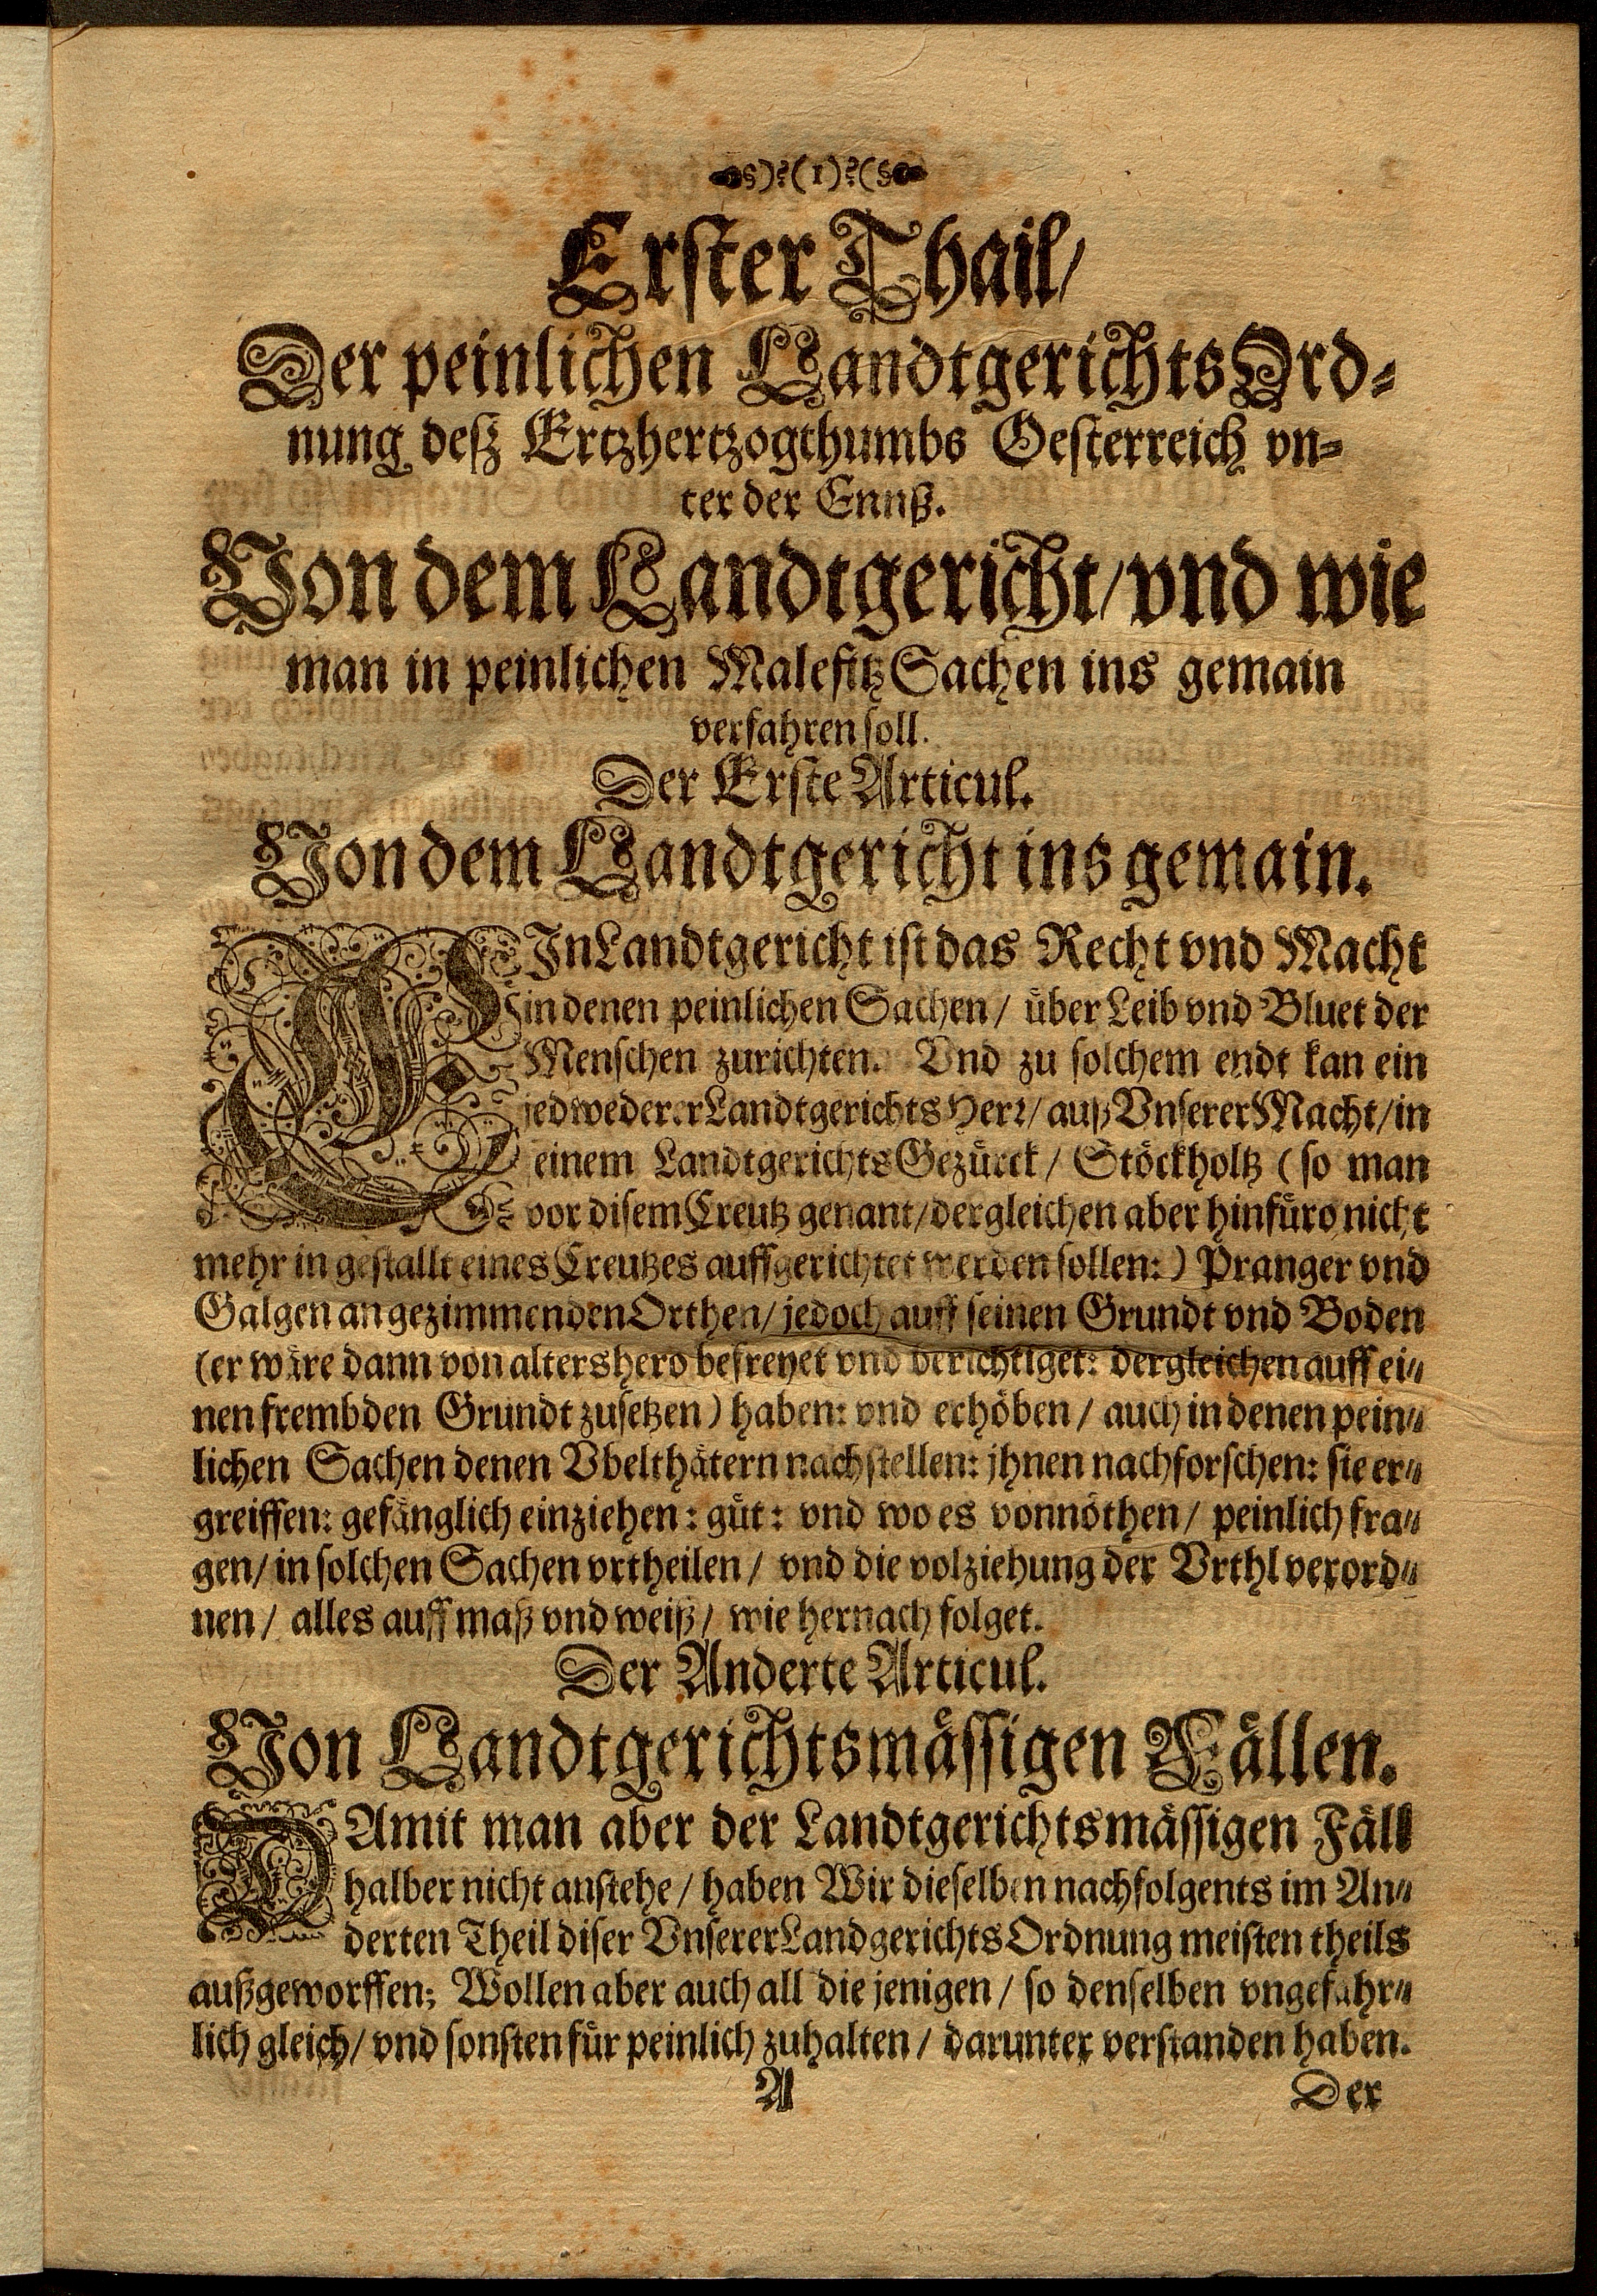 §)?(1)?(§
Erster Thail/
Der peinlichen LandtgerichtsOrd-
nung deß Ertzhertzogthumbs Oesterreich vn-
ter der Ennß.
Von dem Landtgericht/ vnd wie
man in peinlichen Malefitz Sachen ins gemain
verfahren soll.
Der Erste Articul.
Von dem Landtgericht ins gemain.
EIn Landtgericht ist das Recht vnd Macht
in denen peinlichen Sachen / über Leib vnd Bluet der
Menschen zurichten. Vnd zu solchem endt kan ein
jedwederer Landtgerichts Herr/ auß Vnserer Macht/ in
einem Landtgerichts Gezürck / Stöckholtz (so man
vor disem Creutz genant/ dergleichen aber hinfüro nicht
mehr in gestallt eines Creutzes auffgerichtet werden sollen:) Pranger vnd
Galgen an gezimmenden Orthen/ jedoch auff seinen Grundt vnd Boden
(er wäre dann von altershero befreyet vnd berichtiget: dergleichen auff ei-
nen frembden Grundt zusetzen) haben: vnd erhöben / auch in denen pein-
lichen Sachen denen Vbelthätern nachstellen: jhnen nachforschen: sie er-
greiffen: gefänglich einziehen: güt: vnd wo es vonnöthen / peinlich fra-
gen/ in solchen Sachen vrtheilen / vnd die volziehung der Vrthl verord-
nen / alles auff maß vnd weiß / wie hernach folget.
Der Anderte Articul.
Von Landtgerichtsmässigen Fällen.
DAmit man aber der Landtgerichtsmässigen Fäll
halber nicht anstehe / haben Wir dieselben nachfolgents im An-
derten Theil diser Vnserer Landgerichts Ordnung meisten theils
außgeworffen; Wollen aber auch all die jenigen / so denselben vngefähr-
lich gleich/ vnd sonsten für peinlich zuhalten / darunter verstanden haben.
A Der